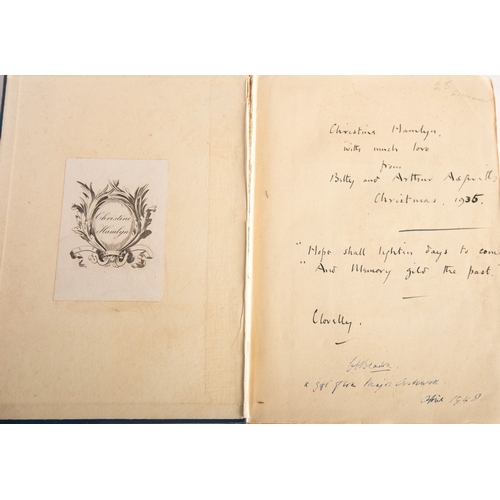 Christine
Hamlyn
Christine Hamlyn,
with much love
from
Betty and Arthur
Christmas, 1935.
"Hope shall lighten days to come
"And Memory gild the past."
Clovelly.
a gift from Major
April 1948